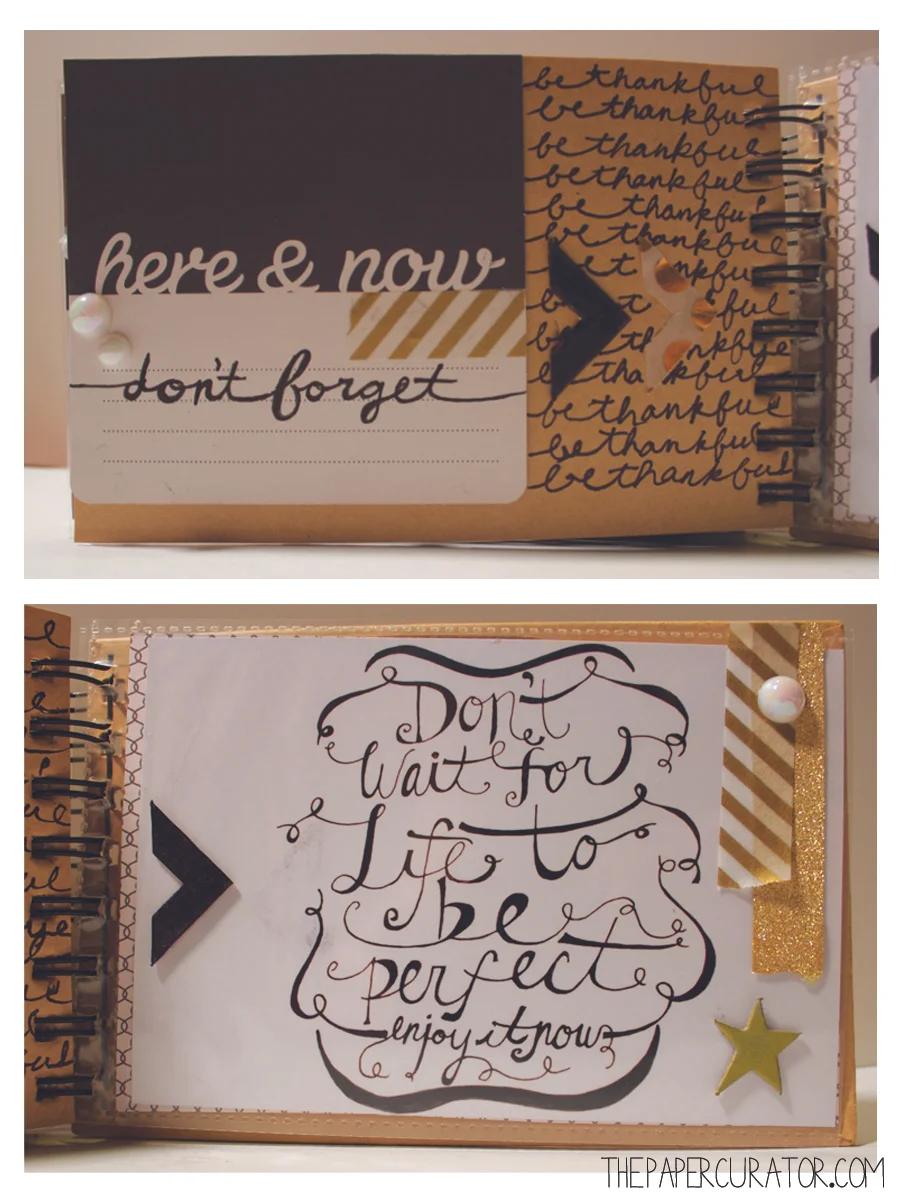 here & now
don't forget
be thankful
be thankful
be thankful
be thankful
be thankful
be thankful
be t nkfu
b t ful
be th nkful
be tha kful
be thankful
be thankful
be thankful
Don't
Wait for
Life to
be
perfect
enjoy it now
THEPAPERCURATOR.COM